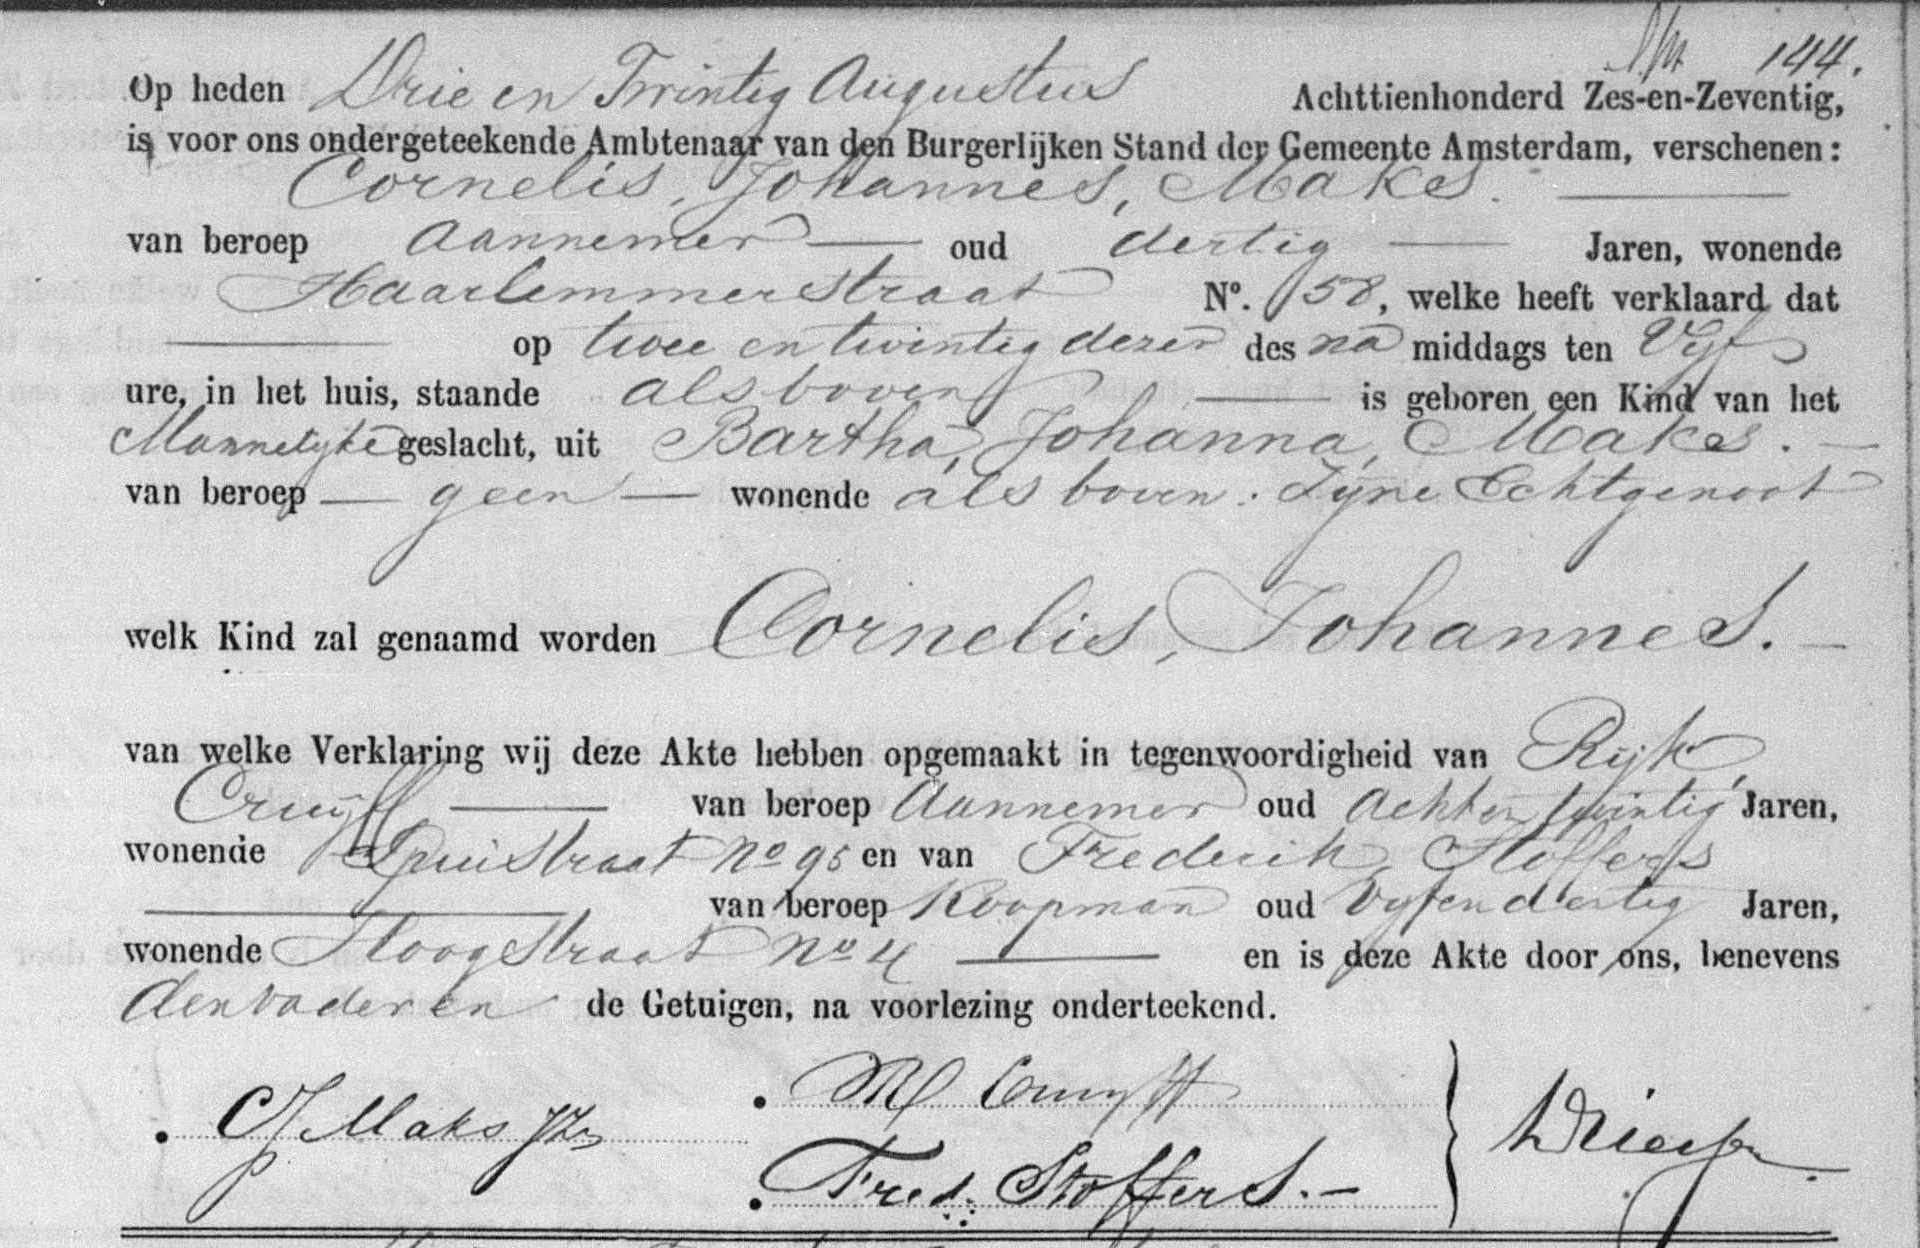 144.
Op heden Drie en Twintig Augustus Achttienhonderd Zes-en-Zeventig,
is voor ons ondergeteekende Ambtenaar van den Burgerlijken Stand der Gemeente Amsterdam, verschenen:
Cornelis, Johannes, Makes.
van beroep Aannemer oud dertig Jaren, wonende
Haarlemmerstraat No. 58, welke heeft verklaard dat
op twee en twintig dezer des na middags ten Vijf
ure, in het huis, staande als boven is geboren een Kind van het
Mannelijke geslacht, uit Bartha, Johanna, Makes.
van beroep geen wonende als boven. Zijne Echtgenoot
welk Kind zal genaamd worden Cornelis, Johannes.
van welke Verklaring wij deze Akte hebben opgemaakt in tegenwoordigheid van Rijk,
Cruijff van beroep Aannemer oud Acht en twintig Jaren,
wonende Spuistraat No 95 en van Frederik Stoffers
van beroep Koopman oud Vijf en dertig Jaren,
wonende Hoogstraat No 4 en is deze Akte door ons, benevens
den vader en de Getuigen, na voorlezing onderteekend.
CJ Maks Jzn
Cruyff
Fred. Stoffers.